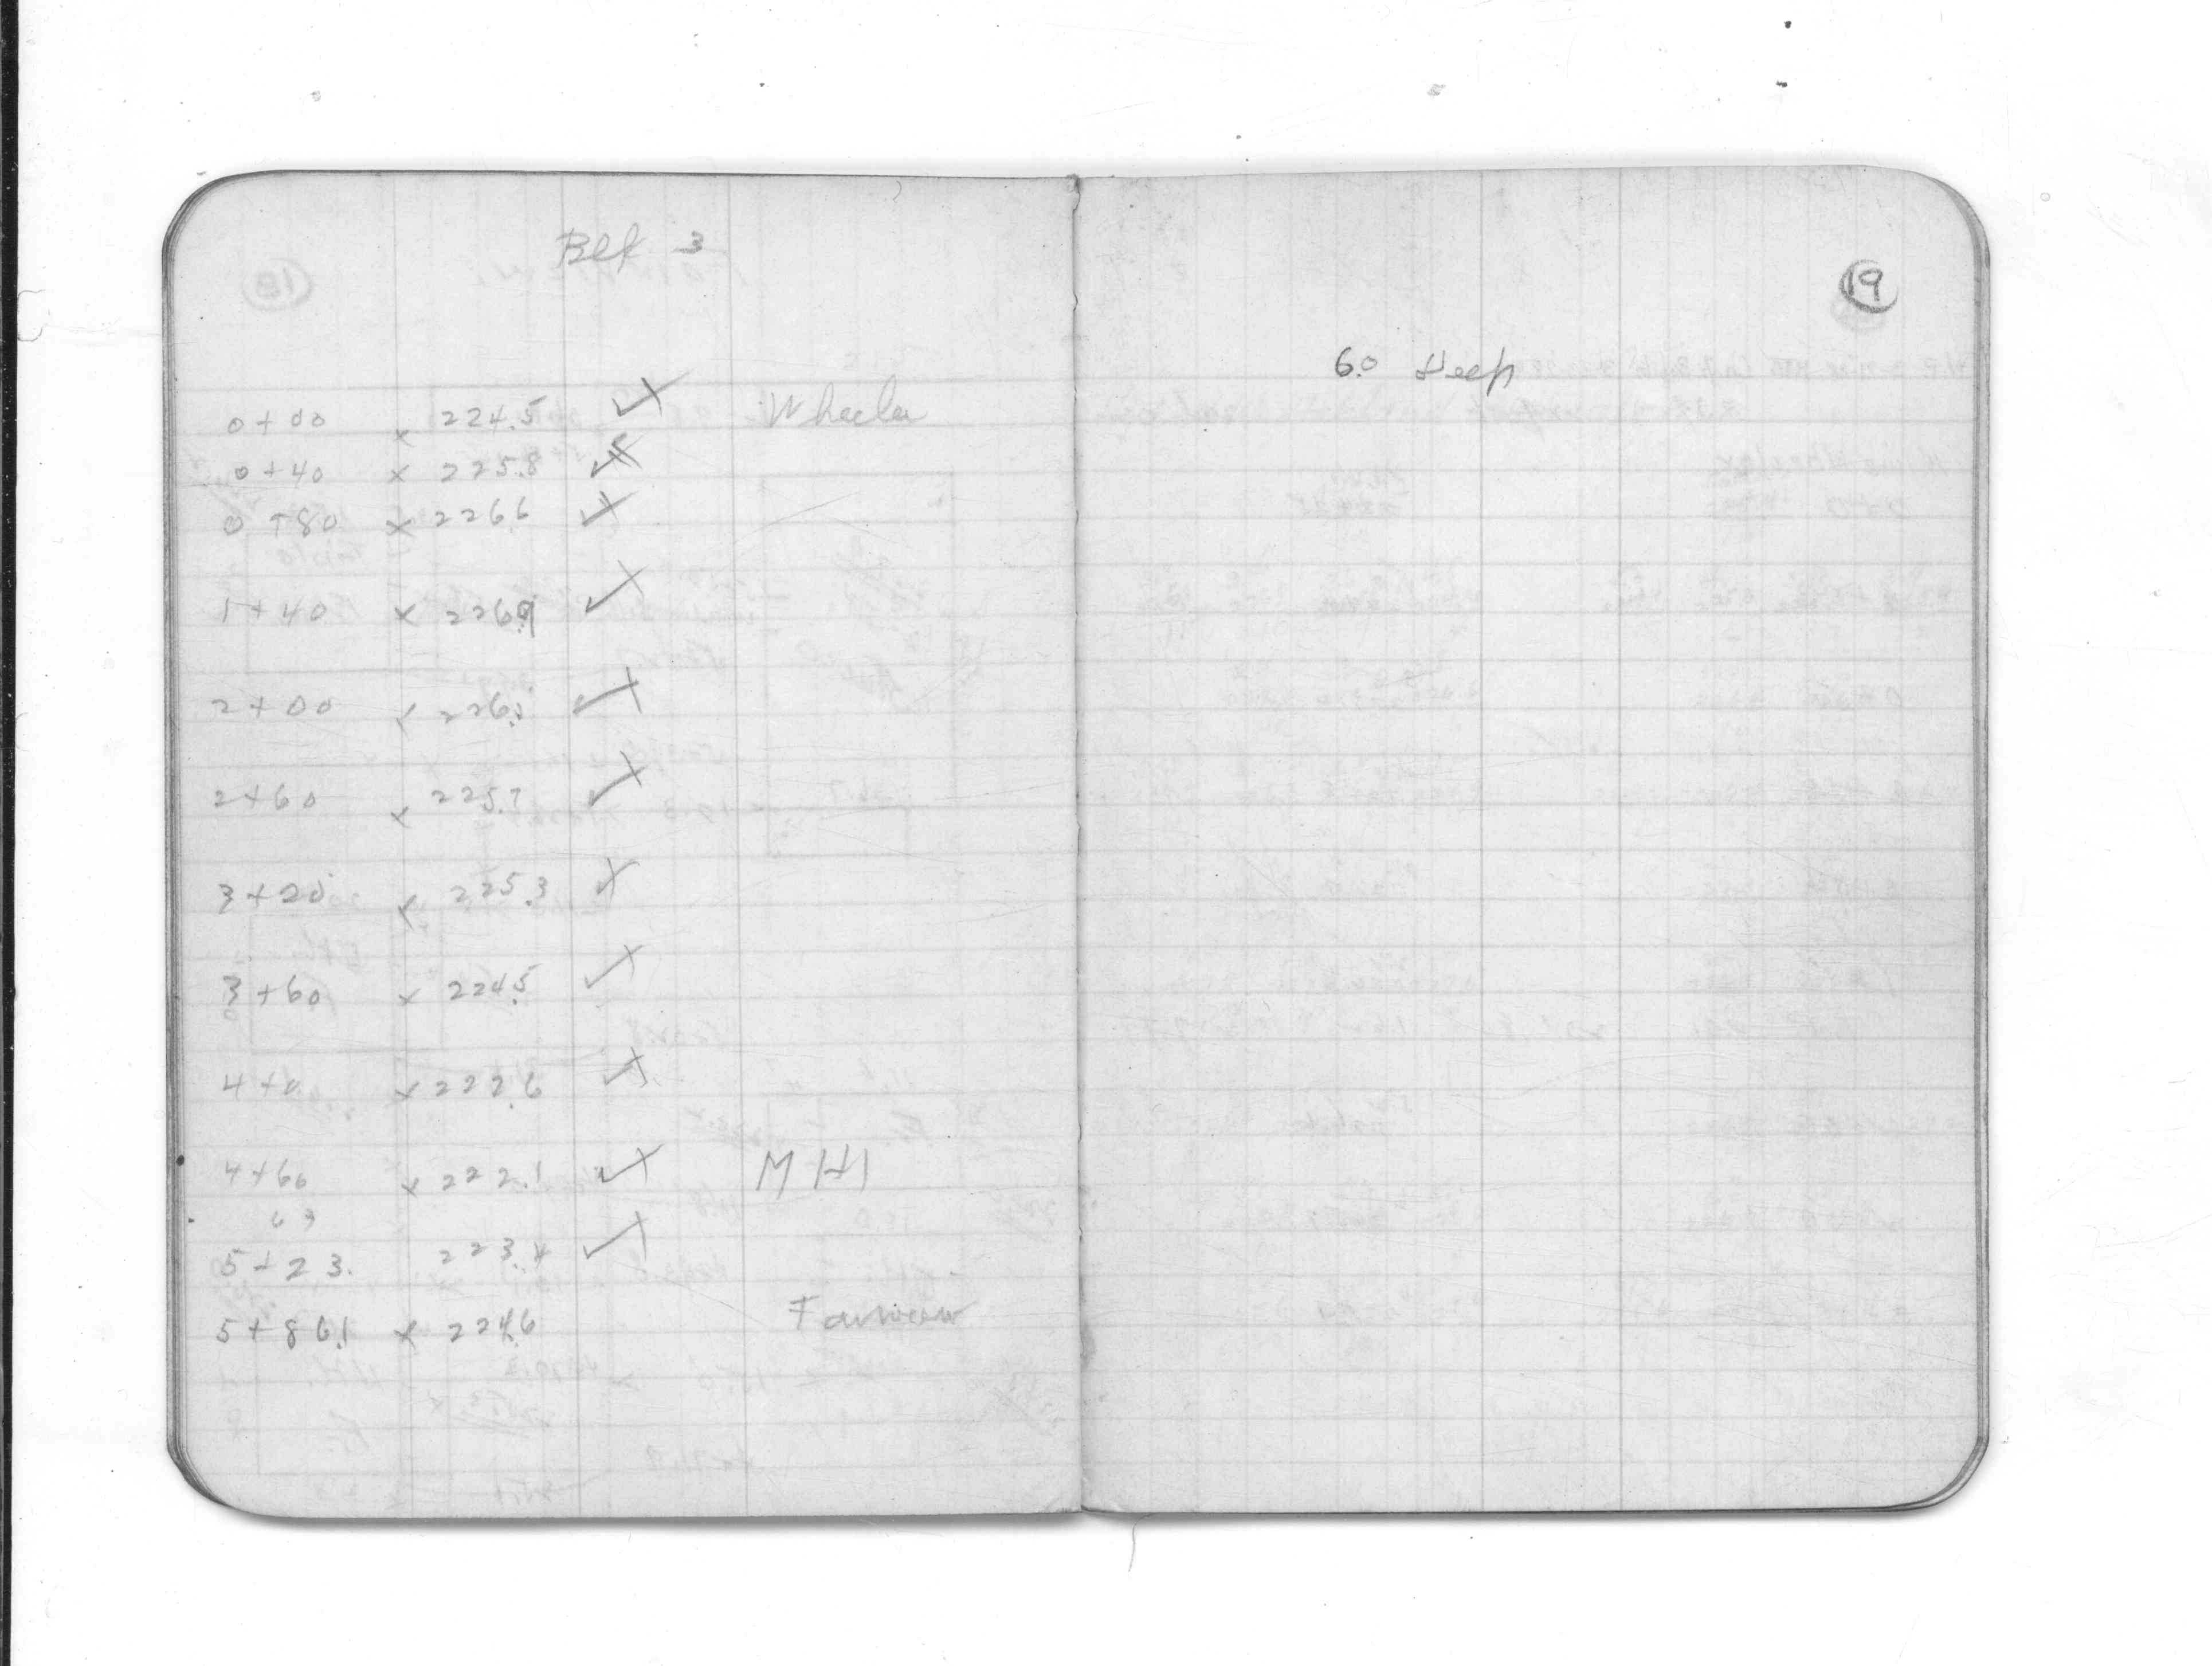 Blk 3
0+00 x 224.5 ✓ Wheeler
0+40 x 225.8 ✓
0+80 x 226.6 ✓
1+40 x 226.9 ✓
2+00 x 226. ✓
2+60 x 225.7 ✓
3+20 x 225.3 ✓
3+60 x 224.5 ✓
4+0 x 222.6 ✓
4+60 x 222.1 ✓ MH
63
5+23. 223.4 ✓
5+86.1 x 224.6 Fairview
19
6.0 deep